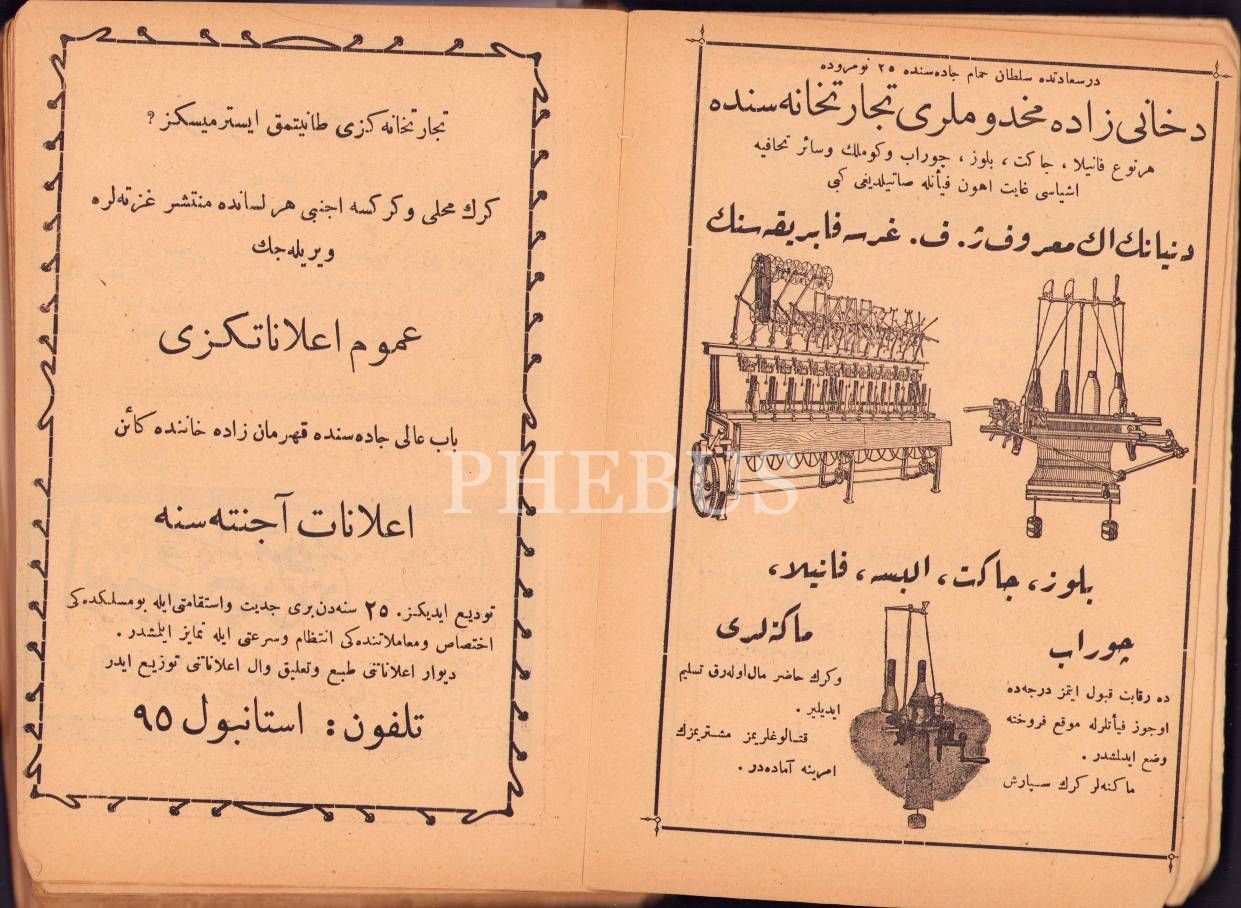 درسعادتده سلطان حمام جاده‌سنده ٢٥ نومروده
دخانی زاده مخدوملری تجارتخانه‌سنده
هرنوع فانیلا، جاکت، بلوز، چوراب وکوملك وسائر تحافیه
اشیاسی غایت اهون فیأتله صاتیلدیغی کبی
دنیانك اك معروف ژ. ف. غرسه فابریقه‌سنك
بلوز، جاکت، البسه، فانیلا،
چوراب
ماکنه‌لری
ده رقابت قبول ایتمز درجه‌ده
اوجوز فیأتلرله موقع فروخته
وضع ایدلشدر.
ماکنه‌لر کرك سپارش
وکرك حاضر مال اوله‌رق تسلیم
ایدیلیر.
قتالوغلریمز مشتریمزك
امرینه آماده‌در.
تجارتخانه‌کزی طانیتمق ایسترمیسکز؟
کرك محلی وکرکسه اجنبی هرلسانده منتشر غزته‌لره
ویریله‌جك
عموم اعلاناتکزی
باب عالی جاده‌سنده قهرمان زاده خاننده کائن
اعلانات آجنته‌سنه
تودیع ایدیکز. ٢٥ سنه‌دن‌بری جدیت واستقامتی‌ایله بومسلکده‌کی
اختصاص ومعاملاتنده‌کی انتظام وسرعتی ایله تمایز ایلمشدر.
دیوار اعلاناتی طبع وتعلیق وال اعلاناتی توزیع ایدر
تلفون: استانبول ٩٥
PHEBUS